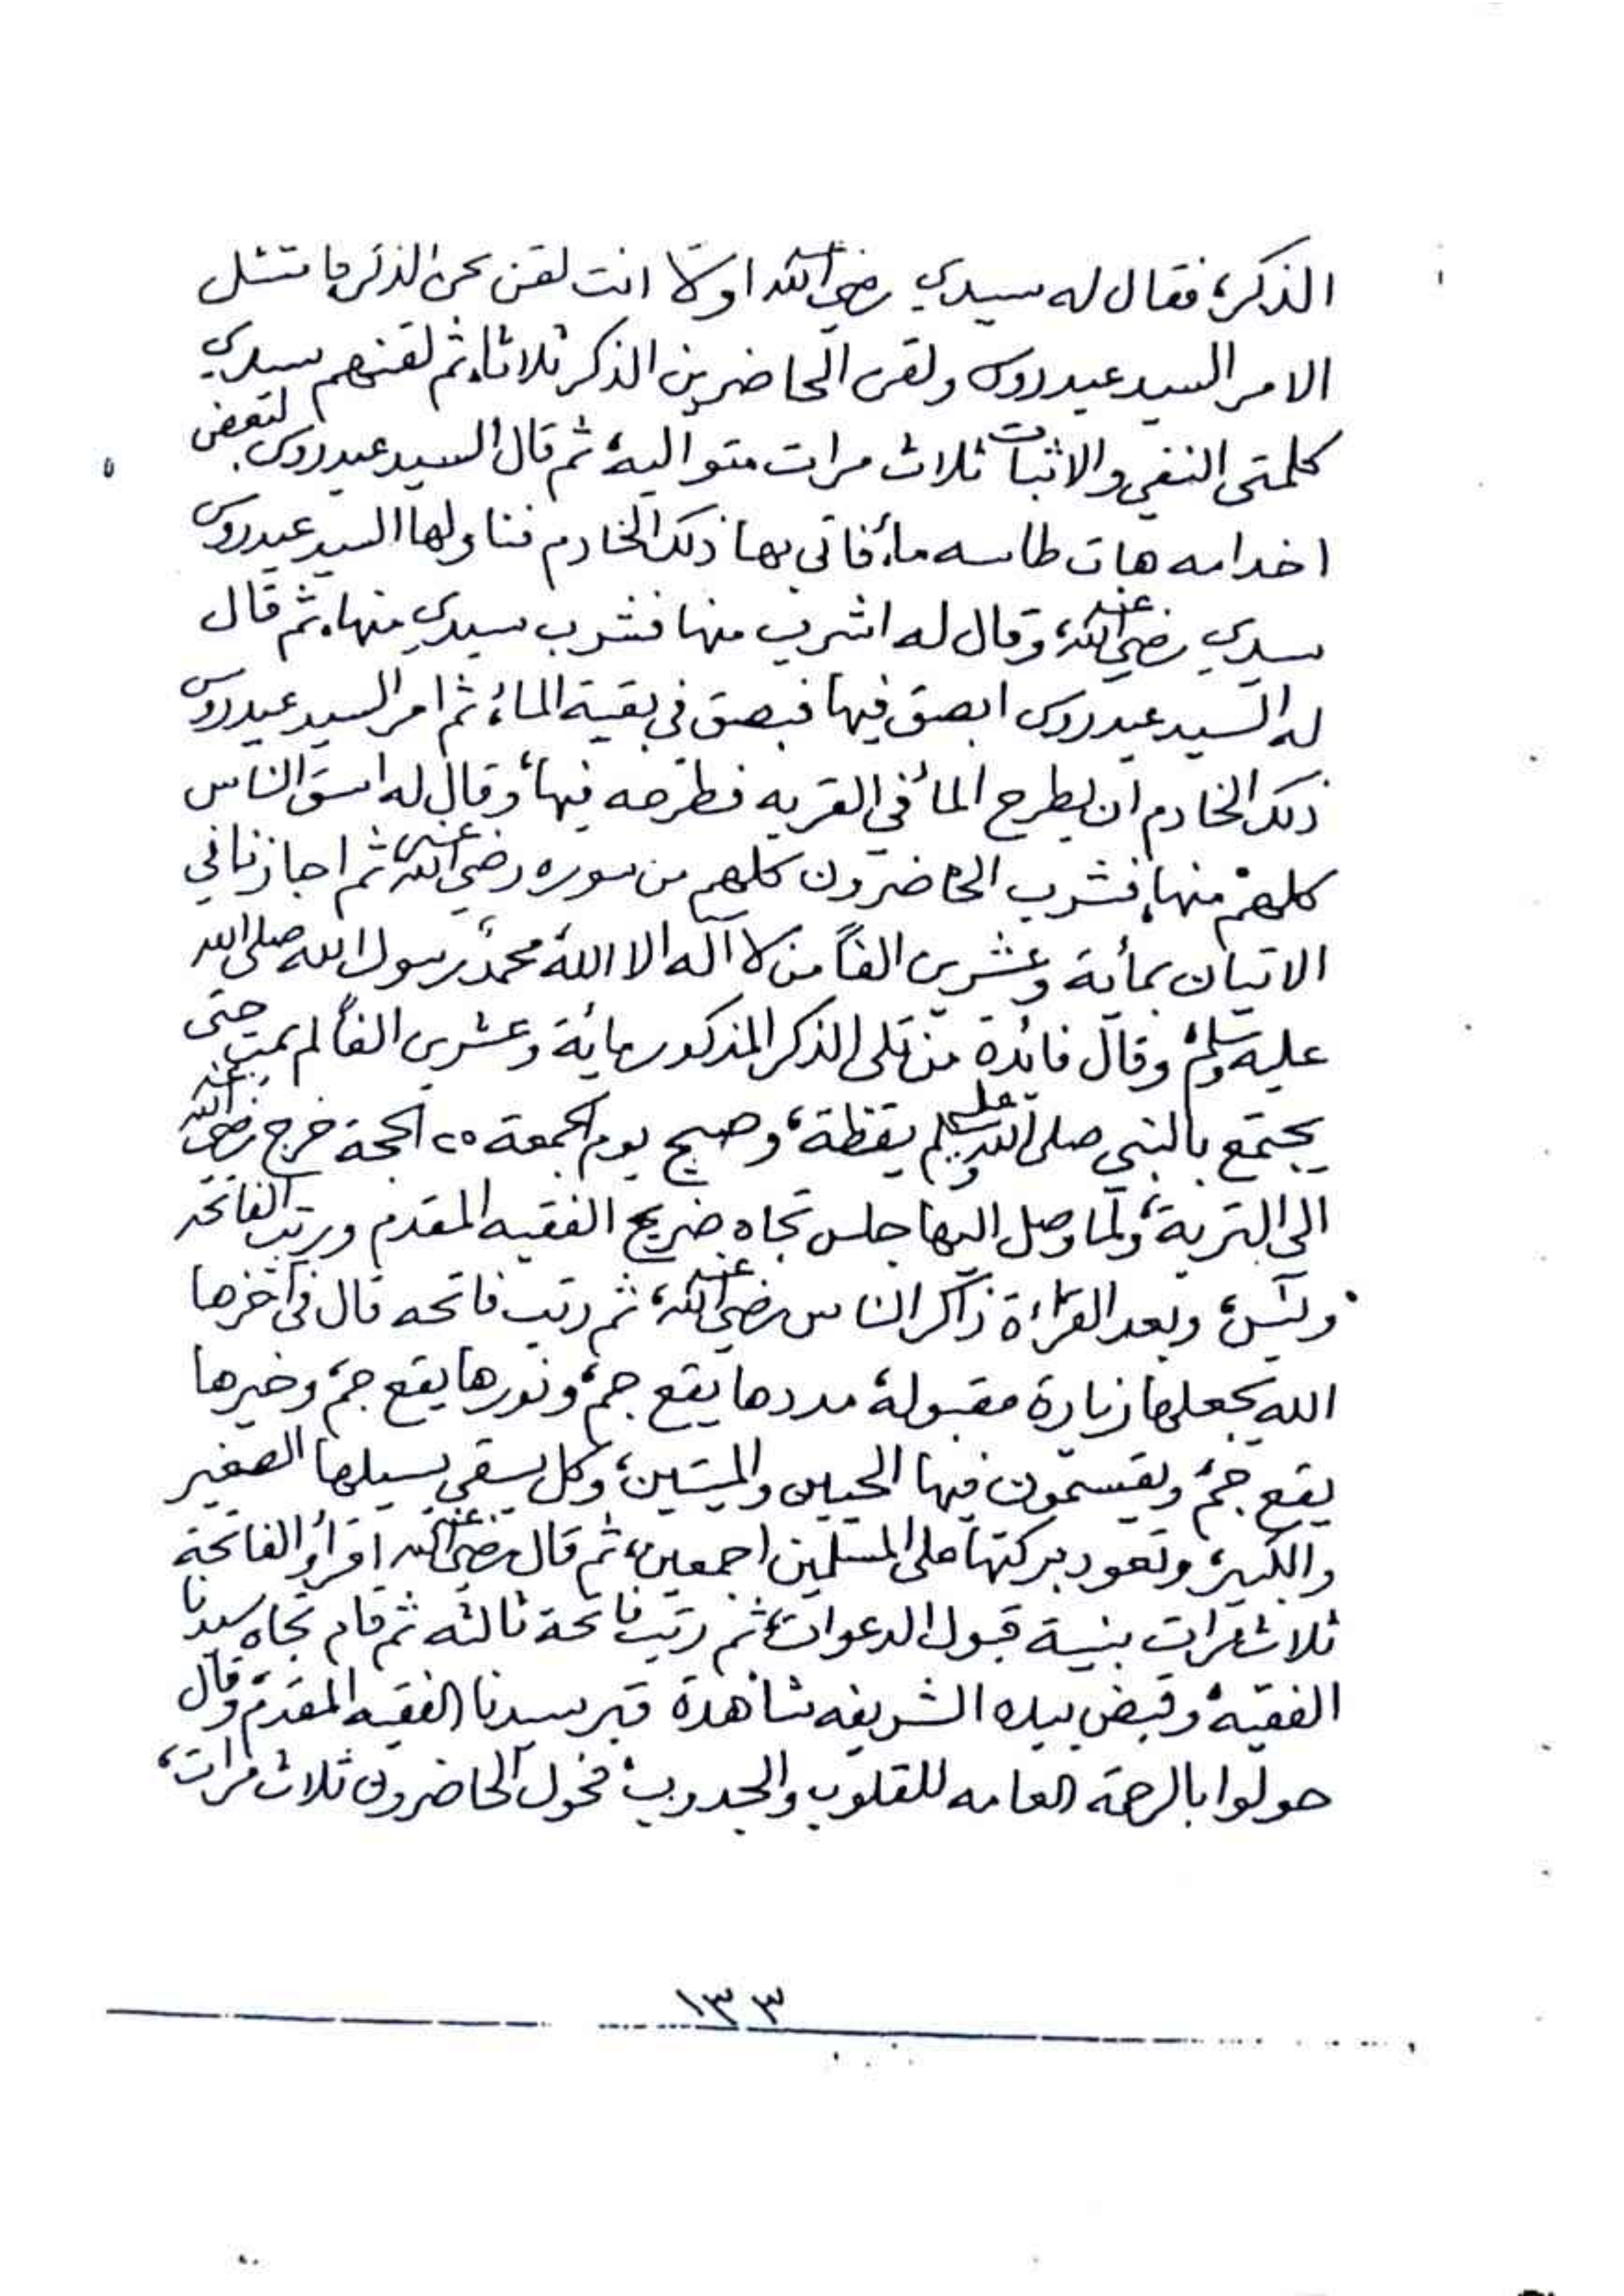 الذكر، فقال له سيدي رضي الله عنه اولاً انت لقن نحن الذكر فامتثل
الامر السيد عيدروس ولقن الحاضرين الذكر ثلاثا، ثم لقنهم سيدي
كلمتى النفي والاثبات ثلاث مرات متواليه، ثم قال السيد عيدروس لبعض
اخدامه هات طاسه ماء، فاتى بها ذلك الخادم فناولها السيد عيدروس
سيدي رضي الله عنه، وقال له اشرب منها فشرب سيدي منها، ثم قال
له السيد عيدروس ابصق فيها فبصق في بقية الماء، ثم امر السيد عيدروس
ذلك الخادم ان يطرح الماء في القربه فطرحه فيها، وقال له اسق الناس
كلهم منها، فشرب الحاضرون كلهم من سوره رضي الله عنه، ثم اجازنا في
الاتيان بمأية وعشرين الفاً من لا آله الا الله محمد رسول الله صلى الله
عليه وسلم، وقال فائدة من تلى الذكر المذكور ماية وعشرين الفاً لم يمت حتى
يجتمع بالنبي صلى الله عليه وسلم يقظة، وصبح يوم الجمعة ٢٥ الحجة خرج رضي الله عنه
الى التربة، ولما وصل اليها جلس تجاه ضريح الفقيه المقدم ورتب الفاتحه
ويس، وبعد القراءة ذاكر الناس رضي الله عنه، ثم رتب فاتحه قال في آخرها
الله يجعلها زيارة مقبولة، مددها يقع جم، ونورها يقع جم، وخيرها
يقع جم، ويقسمون فيها الحيين والميتين، وكل يسقي بسيلها الصغير
والكبير، وتعود بركتها على المسلمين اجمعين، ثم قال رضي الله عنه اقرأو الفاتحة
ثلاث مرات بنية قبول الدعوات، ثم رتب فاتحة ثالثه ثم قام تجاه سيدنا
الفقيه، وقبض بيده الشريفه شاهدة قبر سيدنا الفقيه المقدم، وقال
حولوا بالرحمة العامه للقلوب والجدوب، فحول الحاضرون ثلاث مرات،
١٣٣